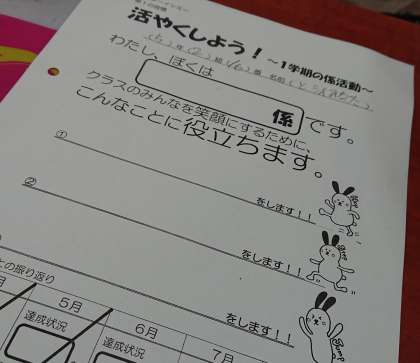 活やくしよう！～1学期の係活動～
わたし、ぼくは
係です。
クラスのみんなを笑顔にするために、
こんなことに役立ちます。
①
をします！！
②
をします！！
をします！！
の振り返り
月 5月 6月 7月
達成状況 達成状況